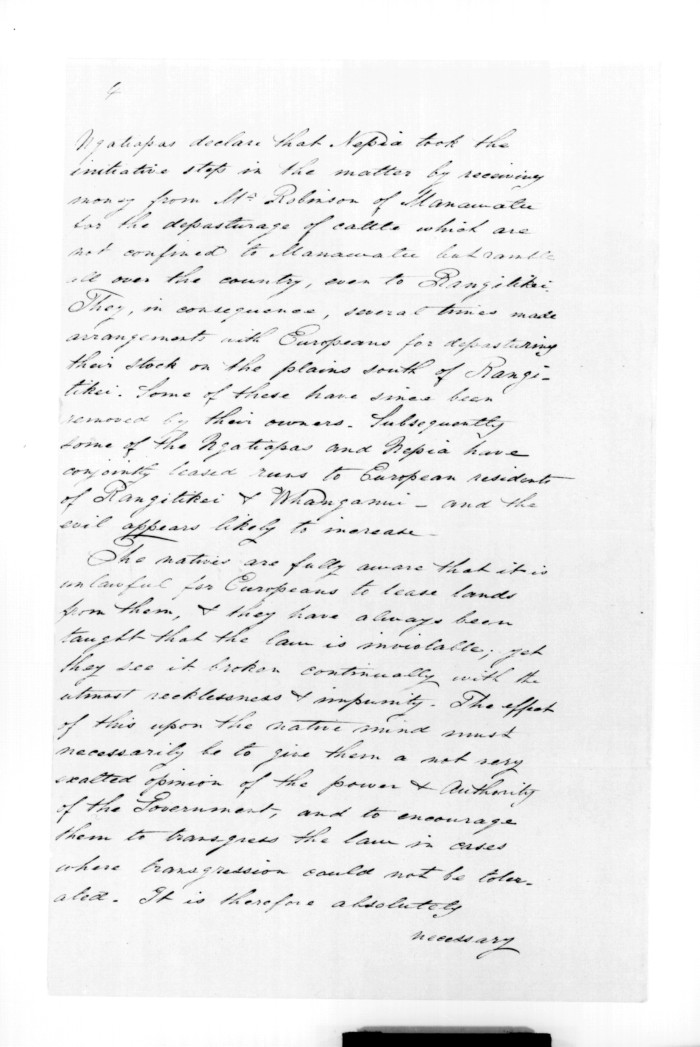 4
Ngatiapas declare that Nepia took the
initiative step in the matter by receiving
money from Mr Robinson of Manawatu
for the depasturage of cattle which are
not confined to Manawatu but ramble
all over the country, even to Rangitikei.
They, in consequence, several times made
arrangements with Europeans for depasturing
their stock on the plains south of Rangi-
tikei. Some of these have since been
removed by their owners. Subsequently
some of the Ngatiapas and Nepia have
conjointly leased runs to European residents
of Rangitikei & Whanganui - and the
evil appears likely to increase -
The natives are fully aware that it is
unlawful for Europeans to lease lands
from them, & they have always been
taught that the law is inviolable; yet
they see it broken continually with the
utmost recklessness & impunity. The effect
of this upon the native mind must
necessarily be to give them a not very
exalted opinion of the power & authority
of the Government, and to encourage
them to transgress the law in cases
where transgression could not be toler-
ated. It is therefore absolutely
necessary